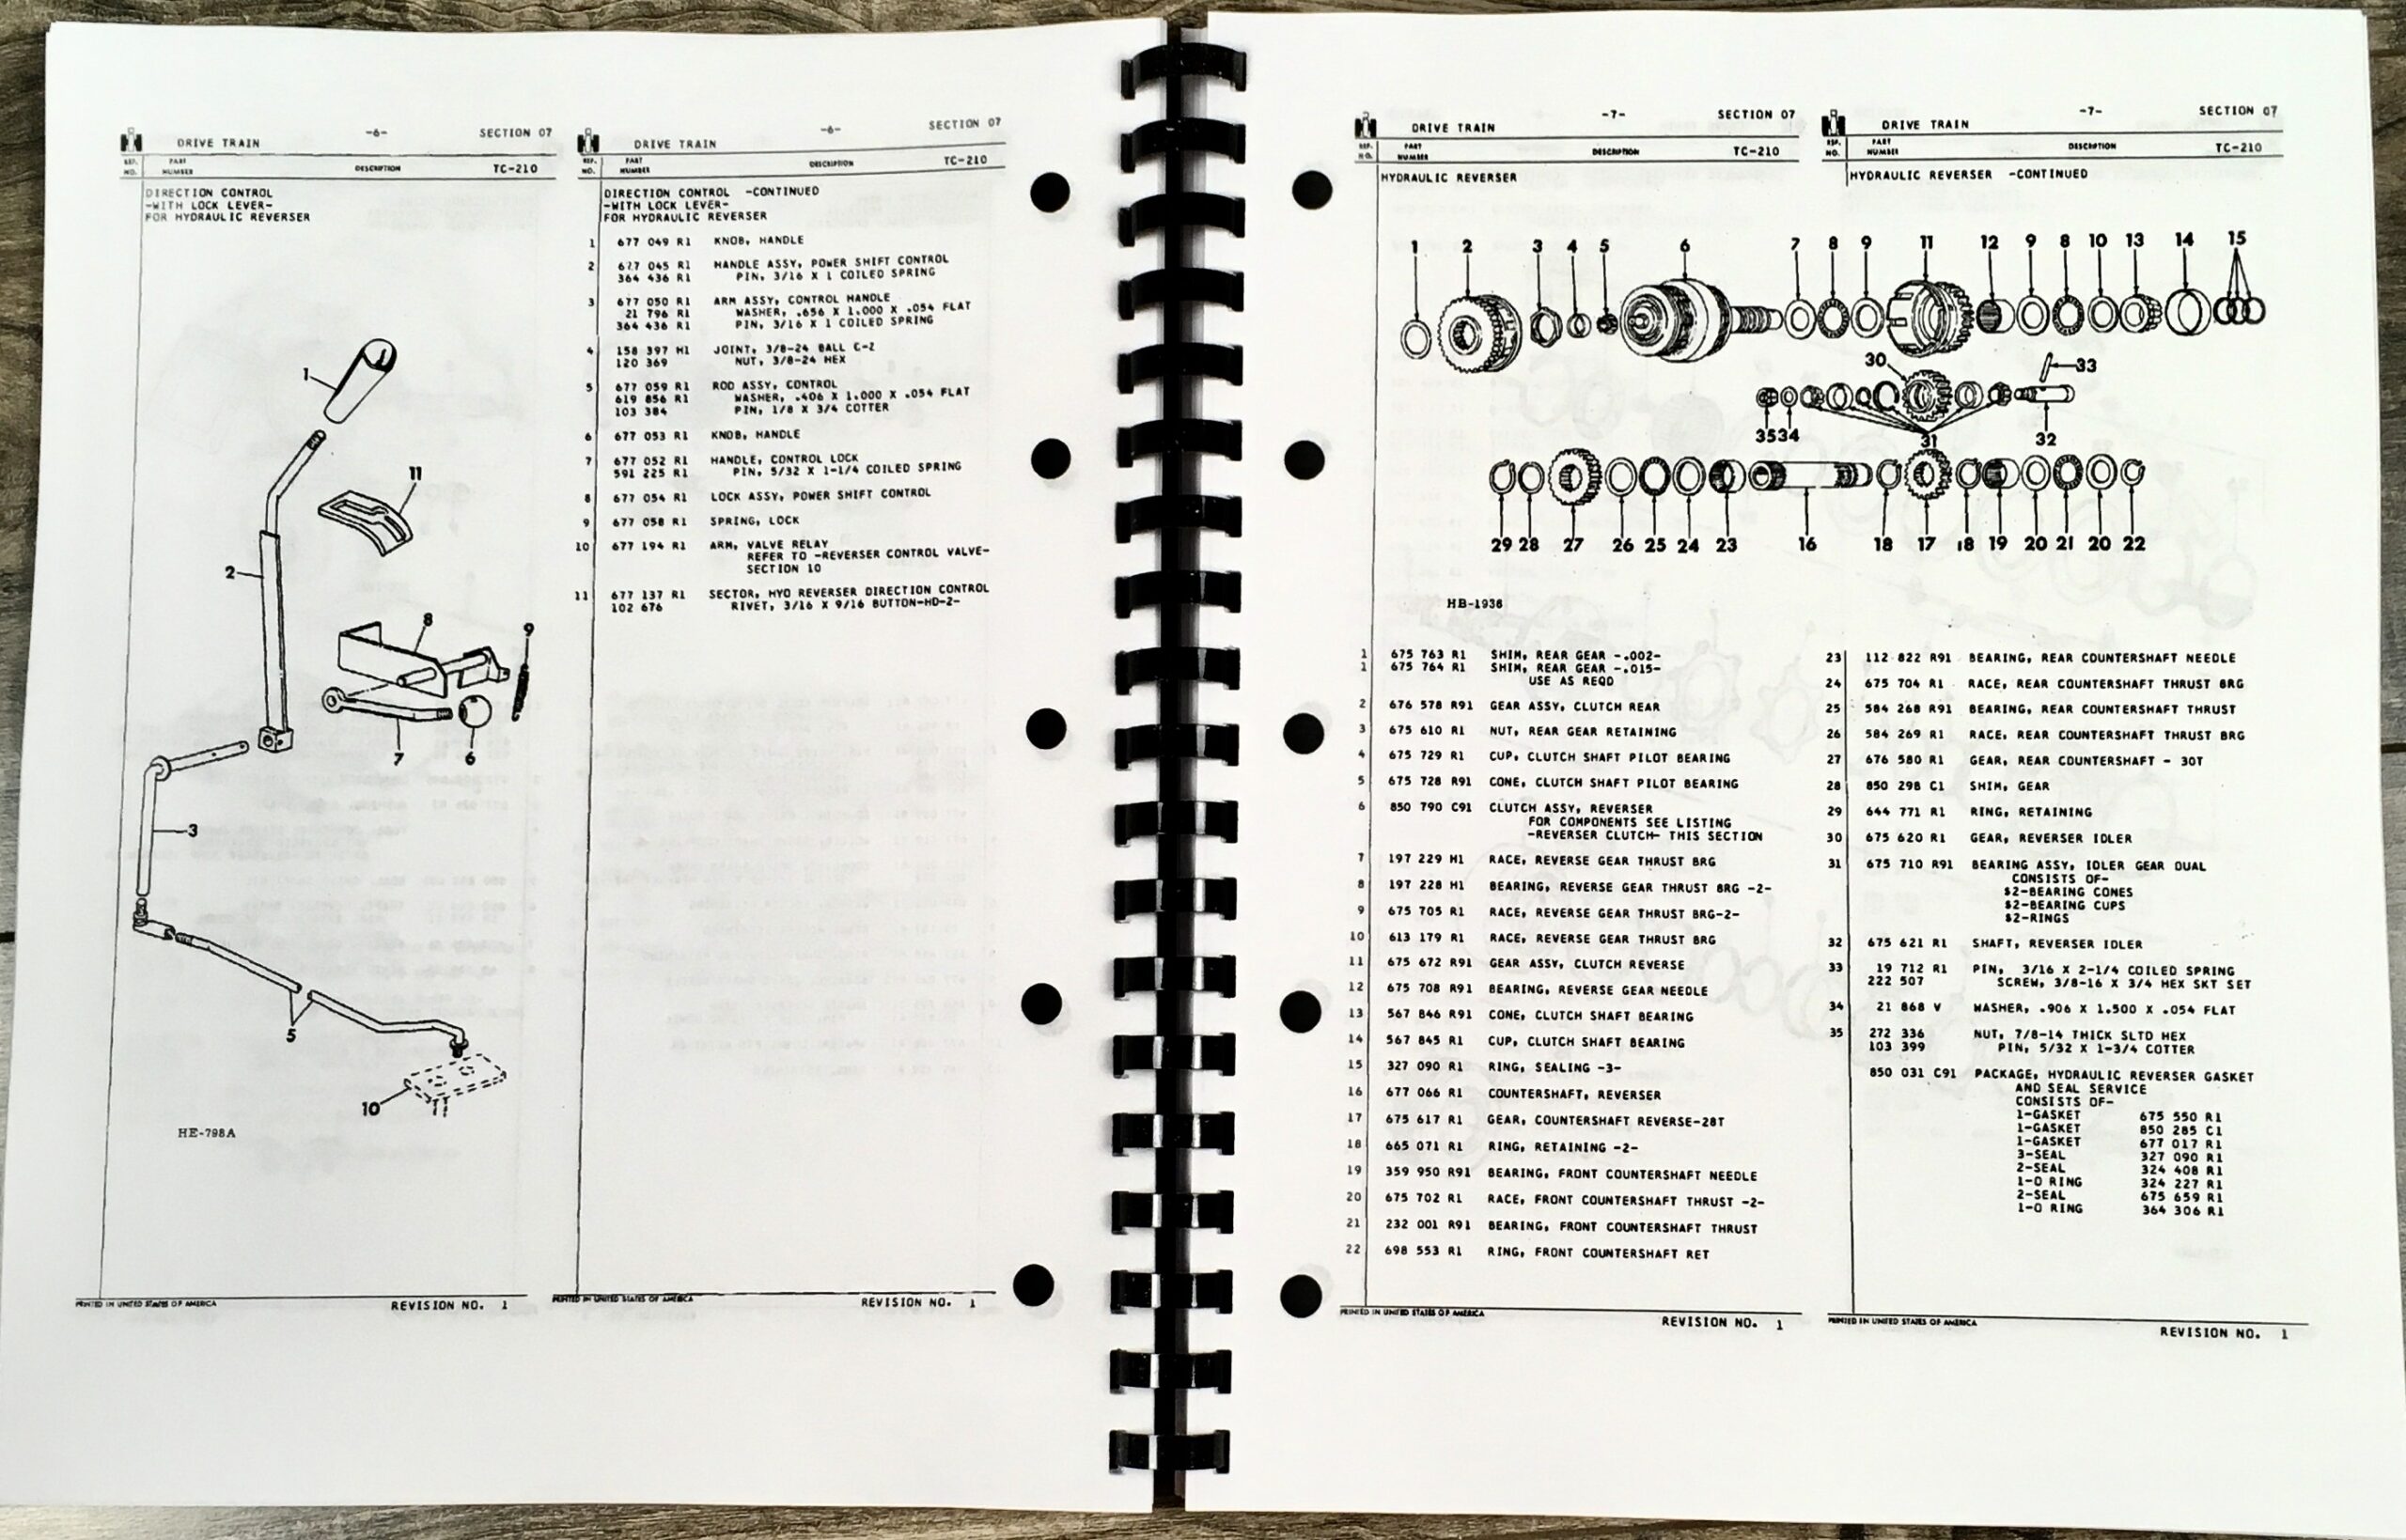 DRIVE TRAIN -6- SECTION 07
REF. NO. PART NUMBER DESCRIPTION TC-210
DIRECTION CONTROL
-WITH LOCK LEVER-
FOR HYDRAULIC REVERSER
1
11
2
8
9
7
6
3
5
10
HE-798A
PRINTED IN UNITED STATES OF AMERICA
REVISION NO. 1
DRIVE TRAIN -6- SECTION 07
REF. NO. PART NUMBER DESCRIPTION TC-210
DIRECTION CONTROL -CONTINUED
-WITH LOCK LEVER-
FOR HYDRAULIC REVERSER
1 677 049 R1 KNOB, HANDLE
2 677 045 R1 HANDLE ASSY, POWER SHIFT CONTROL
364 436 R1 PIN, 3/16 X 1 COILED SPRING
3 677 050 R1 ARM ASSY, CONTROL HANDLE
21 796 R1 WASHER, .656 X 1.000 X .054 FLAT
364 436 R1 PIN, 3/16 X 1 COILED SPRING
4 158 397 H1 JOINT, 3/8-24 BALL C-2
120 369 NUT, 3/8-24 HEX
5 677 059 R1 ROD ASSY, CONTROL
619 856 R1 WASHER, .406 X 1.000 X .054 FLAT
103 384 PIN, 1/8 X 3/4 COTTER
6 677 053 R1 KNOB, HANDLE
7 677 052 R1 HANDLE, CONTROL LOCK
591 225 R1 PIN, 5/32 X 1-1/4 COILED SPRING
8 677 054 R1 LOCK ASSY, POWER SHIFT CONTROL
9 677 058 R1 SPRING, LOCK
10 677 194 R1 ARM, VALVE RELAY
REFER TO -REVERSER CONTROL VALVE-
SECTION 10
11 677 137 R1 SECTOR, HYD REVERSER DIRECTION CONTROL
102 676 RIVET, 3/16 X 9/16 BUTTON-HD-2-
PRINTED IN UNITED STATES OF AMERICA
REVISION NO. 1
DRIVE TRAIN -7- SECTION 07
REF. NO. PART NUMBER DESCRIPTION TC-210
HYDRAULIC REVERSER
DRIVE TRAIN -7- SECTION 07
REF. NO. PART NUMBER DESCRIPTION TC-210
HYDRAULIC REVERSER -CONTINUED
1 2 3 4 5 6 7 8 9 11 12 9 8 10 13 14 15
30 33
35 34 31 32
29 28 27 26 25 24 23 16 18 17 18 19 20 21 20 22
HB-1938
1 675 763 R1 SHIM, REAR GEAR -.002-
1 675 764 R1 SHIM, REAR GEAR -.015-
USE AS REQD
2 676 578 R91 GEAR ASSY, CLUTCH REAR
3 675 610 R1 NUT, REAR GEAR RETAINING
4 675 729 R1 CUP, CLUTCH SHAFT PILOT BEARING
5 675 728 R91 CONE, CLUTCH SHAFT PILOT BEARING
6 850 790 C91 CLUTCH ASSY, REVERSER
FOR COMPONENTS SEE LISTING
-REVERSER CLUTCH- THIS SECTION
7 197 229 H1 RACE, REVERSE GEAR THRUST BRG
8 197 228 H1 BEARING, REVERSE GEAR THRUST BRG -2-
9 675 705 R1 RACE, REVERSE GEAR THRUST BRG-2-
10 613 179 R1 RACE, REVERSE GEAR THRUST BRG
11 675 672 R91 GEAR ASSY, CLUTCH REVERSE
12 675 708 R91 BEARING, REVERSE GEAR NEEDLE
13 567 846 R91 CONE, CLUTCH SHAFT BEARING
14 567 845 R1 CUP, CLUTCH SHAFT BEARING
15 327 090 R1 RING, SEALING -3-
16 677 066 R1 COUNTERSHAFT, REVERSER
17 675 617 R1 GEAR, COUNTERSHAFT REVERSE-28T
18 665 071 R1 RING, RETAINING -2-
19 359 950 R91 BEARING, FRONT COUNTERSHAFT NEEDLE
20 675 702 R1 RACE, FRONT COUNTERSHAFT THRUST -2-
21 232 001 R91 BEARING, FRONT COUNTERSHAFT THRUST
22 698 553 R1 RING, FRONT COUNTERSHAFT RET
PRINTED IN UNITED STATES OF AMERICA
REVISION NO. 1
23 112 822 R91 BEARING, REAR COUNTERSHAFT NEEDLE
24 675 704 R1 RACE, REAR COUNTERSHAFT THRUST BRG
25 584 268 R91 BEARING, REAR COUNTERSHAFT THRUST
26 584 269 R1 RACE, REAR COUNTERSHAFT THRUST BRG
27 676 580 R1 GEAR, REAR COUNTERSHAFT - 30T
28 850 298 C1 SHIM, GEAR
29 644 771 R1 RING, RETAINING
30 675 620 R1 GEAR, REVERSER IDLER
31 675 710 R91 BEARING ASSY, IDLER GEAR DUAL
CONSISTS OF-
$2-BEARING CONES
$2-BEARING CUPS
$2-RINGS
32 675 621 R1 SHAFT, REVERSER IDLER
33 19 712 R1 PIN, 3/16 X 2-1/4 COILED SPRING
222 507 SCREW, 3/8-16 X 3/4 HEX SKT SET
34 21 868 V WASHER, .906 X 1.500 X .054 FLAT
35 272 336 NUT, 7/8-14 THICK SLTD HEX
103 399 PIN, 5/32 X 1-3/4 COTTER
850 031 C91 PACKAGE, HYDRAULIC REVERSER GASKET
AND SEAL SERVICE
CONSISTS OF-
1-GASKET 675 550 R1
1-GASKET 850 285 C1
1-GASKET 677 017 R1
3-SEAL 327 090 R1
2-SEAL 324 408 R1
1-O RING 324 227 R1
2-SEAL 675 659 R1
1-O RING 364 306 R1
PRINTED IN UNITED STATES OF AMERICA
REVISION NO. 1